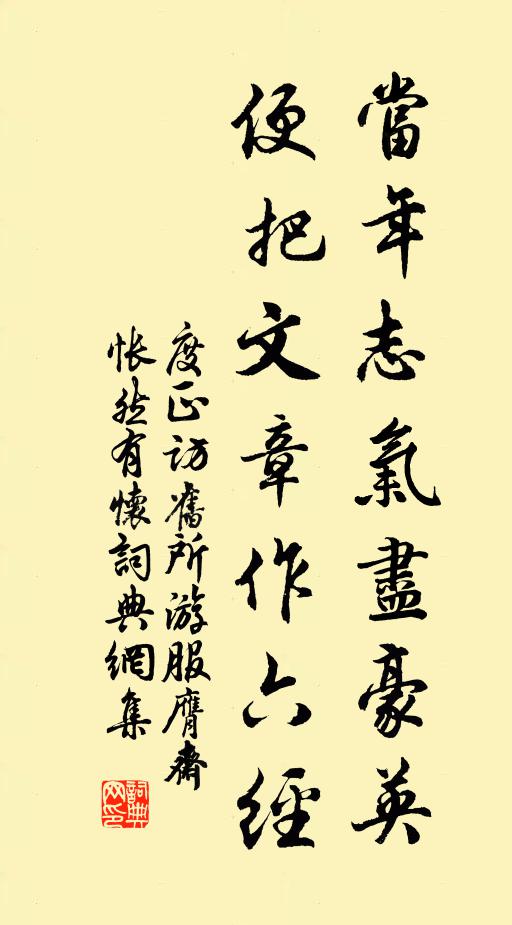 當年志氣盡豪英
便把文章作六經
度正訪舊所游服膺齋
悵然有懷詞典網集
詞典網印